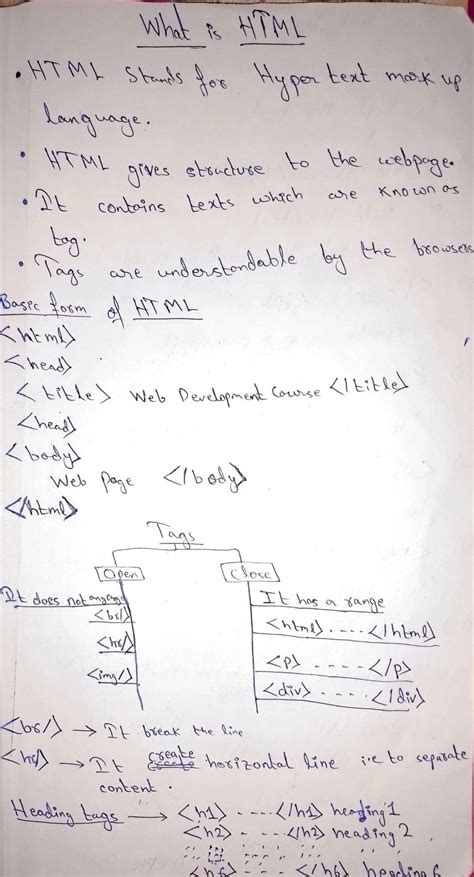 What is HTML
• HTML Stands for Hyper text mark up
language.
• HTML gives structure to the webpage.
• It contains texts which are known as
tag.
• Tags are understandable by the browsers
Basic form of HTML
<html>
<head>
<title> Web Development Course </title>
<head>
<body>
Web Page </body>
</html>
Tags
Open
Close
It does not any range
<br/>
<hr/>
<img/>
It has a range
<html>.....</html>
<p> .....</p>
<div> .....</div>
<br/> → It break the line
<hr/> → It create horizontal line i.e to separate
content.
Heading tags → <h1> ....</h1> heading 1
<h2> ....</h2> heading 2
<h6> ....</h6> heading 6